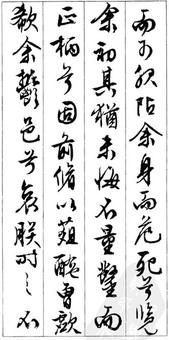 而可服阽余身而危死兮覽
余初其猶未悔不量鑿而
正枘兮固前脩以菹醢曾歔
欷余鬱邑兮哀朕時之不